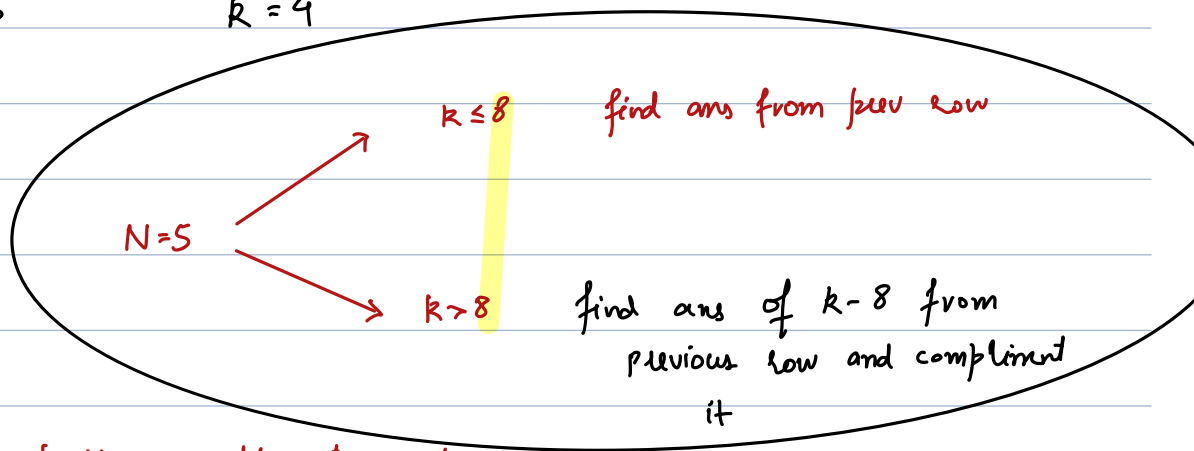 k = 4
k ≤ 8 find ans from prev row
N=5
k > 8 find ans of k - 8 from
previous row and compliment
it